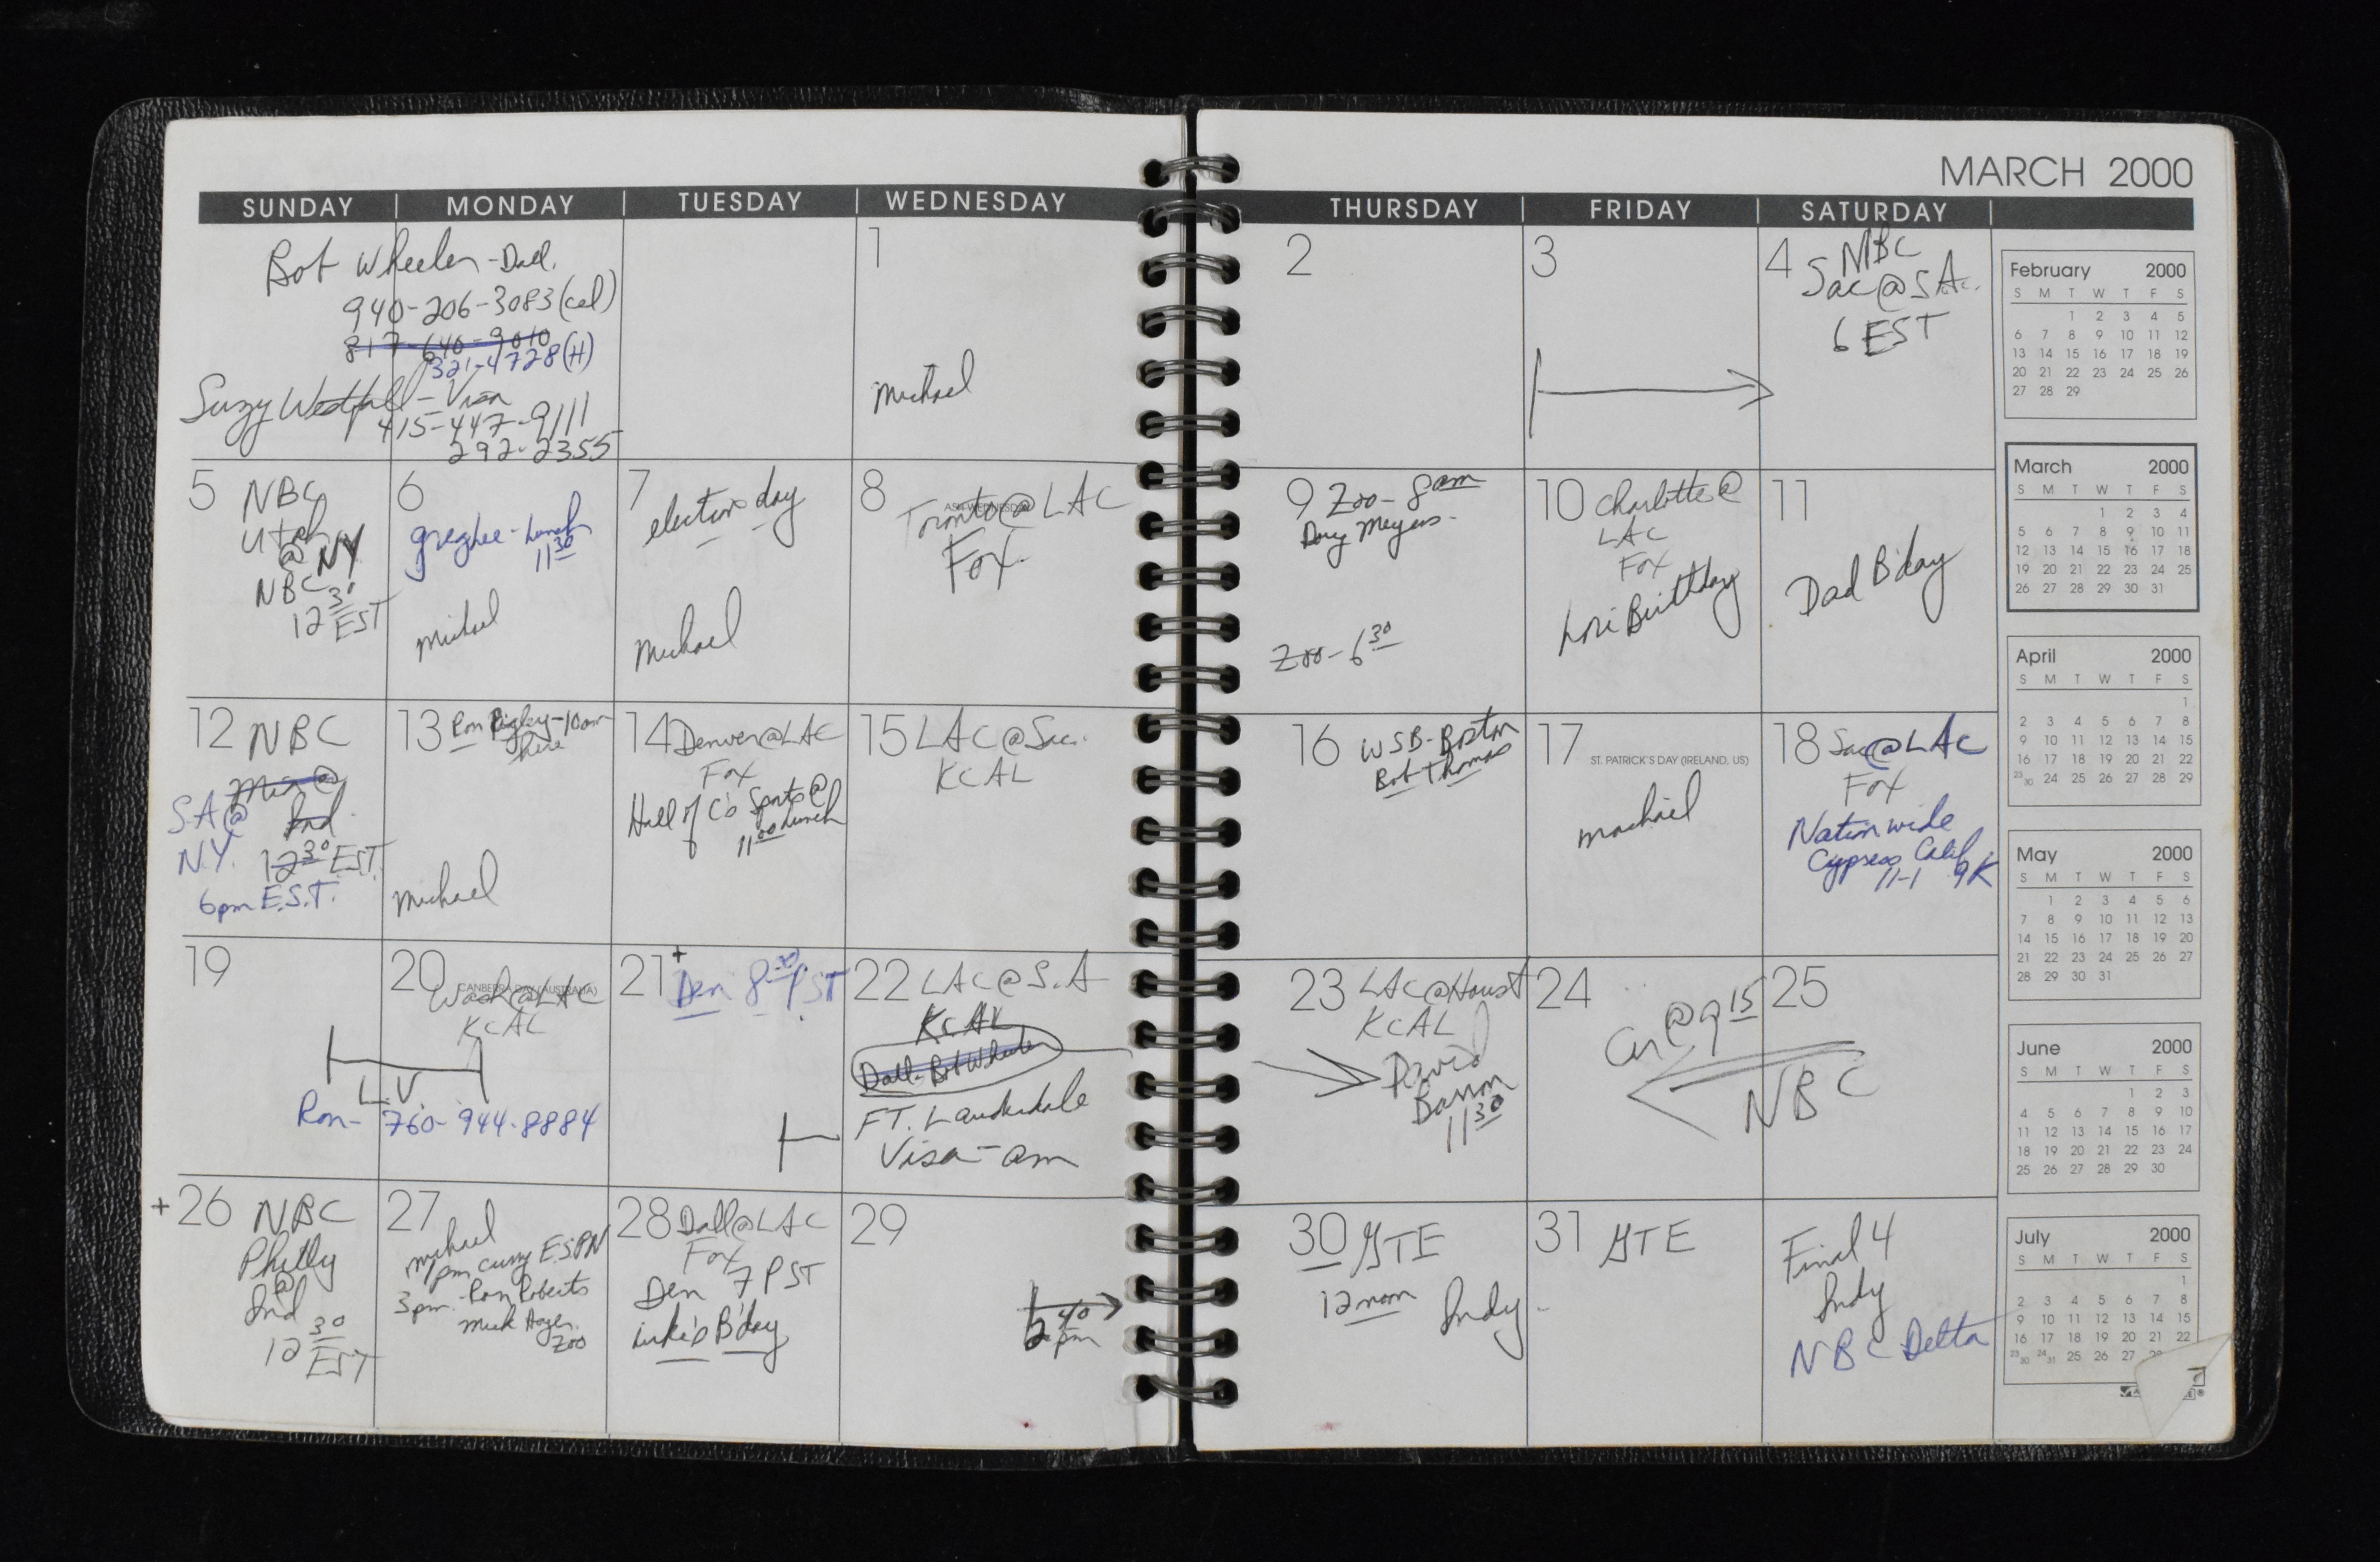 MARCH 2000
SUNDAY MONDAY TUESDAY WEDNESDAY THURSDAY FRIDAY SATURDAY
Bob Wheeler - Dall.
940-206-3083 (cel)
817-640-9010
321-4728 (H)
Suzy Westfall - Visa
415-447-9111
292-2355
1
Michael
2
3
4 NBC
Sac @ S.A.
6 EST
5 NBC
Utah
@ NY
NBC
12 30
EST
6
- Lunch
11 30
Michael
7
election day
Michael
8
ASH WEDNESDAY
Toronto @ LAC
Fox
9 Zoo - 8 am
Doug Meyers
Zoo - 6 30
10 Charlotte @
LAC
Fox
Lori Birthday
11
Dad B'day
12 NBC
Min @
Ind
S.A @
N.Y. 12 30 EST
6pm E.S.T.
13 Ron - 10am
here
Michael
14 Denver @ LAC
Fox
Hall of C's Sports @
11 00 Lunch
15 LAC @ Sac.
KCAL
16 WSB - Boston
Bob Thomas
17
ST. PATRICK'S DAY (IRELAND, US)
Michael
18 Sac @ LAC
Fox
Nationwide
Cypress Calif
11-1 9K
19
20
CANBERRA DAY (AUSTRALIA)
Wash @ LAC
KCAL
L.V.
Ron - 760-944-8884
21 + Den 8 30 PST
22 LAC @ S.A
KCAL
Dall - Bob Wheeler
FT. Lauderdale
Visa - am
23 LAC @ Houst
KCAL
David
Baron
11 30
24
Car @ 9 15
25
NBC
+ 26 NBC
Philly
@
Ind
12 30
EST
27
Michael
1pm Curry ESPN
3pm - Ron Roberts
Zoo
28 Dall @ LAC
Fox
Den 7 PST
Luke's B'day
29
40
pm
30 GTE
12 noon Indy
31 GTE
Final 4
Indy
NBC Delta
February 2000
S M T W T F S
1 2 3 4 5
6 7 8 9 10 11 12
13 14 15 16 17 18 19
20 21 22 23 24 25 26
27 28 29
March 2000
S M T W T F S
1 2 3 4
5 6 7 8 9 10 11
12 13 14 15 16 17 18
19 20 21 22 23 24 25
26 27 28 29 30 31
April 2000
S M T W T F S
1
2 3 4 5 6 7 8
9 10 11 12 13 14 15
16 17 18 19 20 21 22
23 30 24 25 26 27 28 29
May 2000
S M T W T F S
1 2 3 4 5 6
7 8 9 10 11 12 13
14 15 16 17 18 19 20
21 22 23 24 25 26 27
28 29 30 31
June 2000
S M T W T F S
1 2 3
4 5 6 7 8 9 10
11 12 13 14 15 16 17
18 19 20 21 22 23 24
25 26 27 28 29 30
July 2000
S M T W T F S
1
2 3 4 5 6 7 8
9 10 11 12 13 14 15
16 17 18 19 20 21 22
23 30 24 31 25 26 27